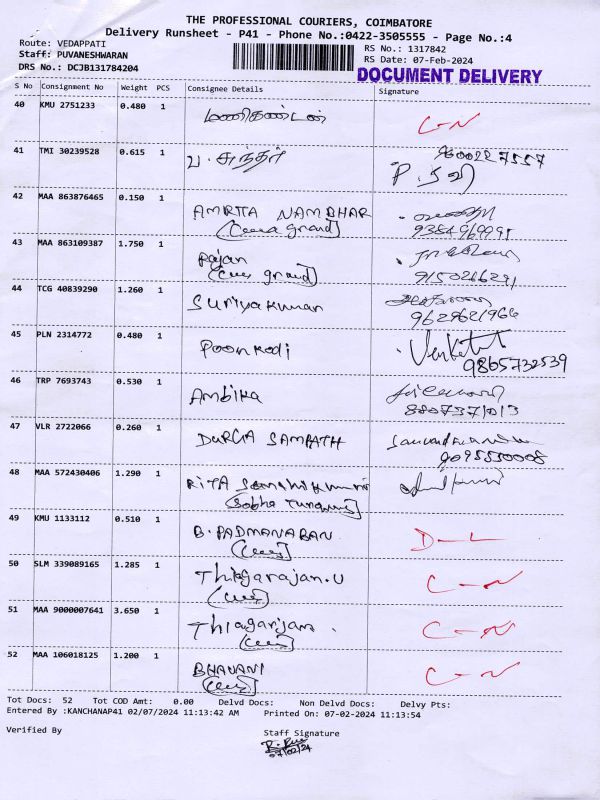 THE PROFESSIONAL COURIERS, COIMBATORE
Delivery Runsheet - P41 - Phone No.:0422-3505555 - Page No.:4
Route: VEDAPPATI
RS No.: 1317842
Staff: PUVANESHWARAN
RS Date: 07-Feb-2024
DRS No.: DCJB131784204
DOCUMENT DELIVERY
S No Consignment No Weight PCS Consignee Details Signature
40 KMU 2751233 0.480 1 மணிகண்டன் C-N
41 TMI 30239528 0.615 1 ப. சுந்தர்
42 MAA 863876465 0.150 1 AMRTA NAMBHAR
grand)
43 MAA 863109387 1.750 1 Rajan
grand)
44 TCG 40839290 1.260 1 Suriyakumar
9629621966
45 PLN 2314772 0.480 1 Poonkodi Venkatet
9865732539
46 TRP 7693743 0.530 1 Ambika
8807371013
47 VLR 2722066 0.260 1 DURGA SAMPATH
9095550008
48 MAA 572430406 1.290 1 RITA
(Sobha
49 KMU 1133112 0.510 1 B. PADMANABAN D-L
50 SLM 339089165 1.285 1 Thiagarajan.U C-N
51 MAA 9000007641 3.650 1 Thiagarijan. C-N
52 MAA 106018125 1.200 1 BHAVANI C-N
Tot Docs: 52 Tot COD Amt: 0.00 Delvd Docs: Non Delvd Docs: Delvy Pts:
Entered By :KANCHANAP41 02/07/2024 11:13:42 AM Printed On: 07-02-2024 11:13:54
Verified By Staff Signature
07/02/24